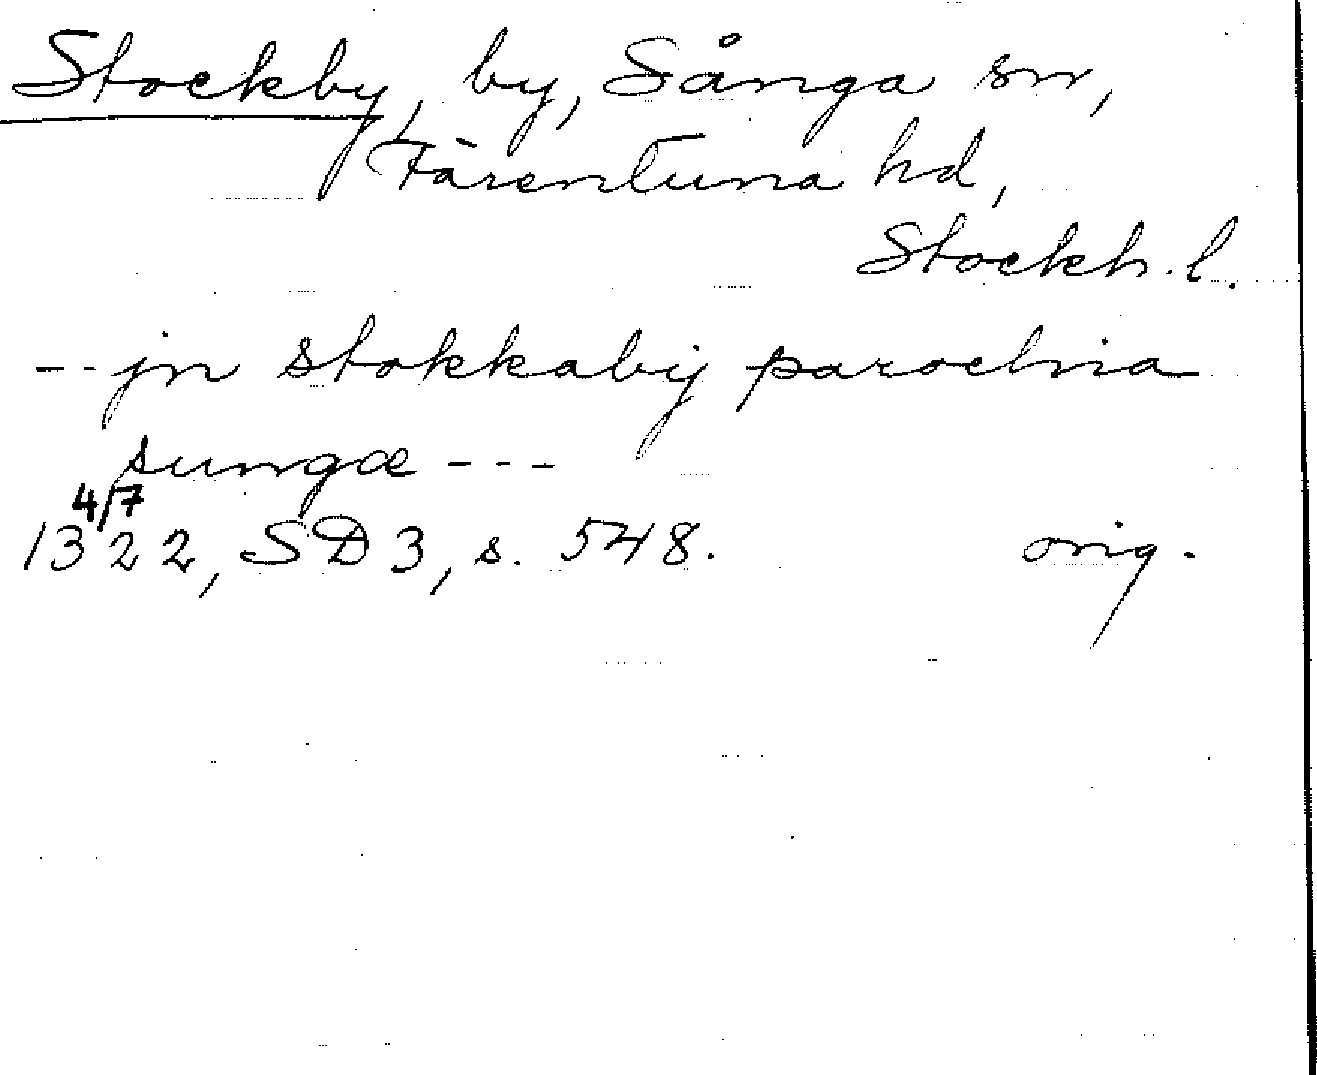 Stockby, by, Sånga sn,
Färentuna hd,
Stockh. l.
-- jn stokkabij parochia
sungæ ---
4/7
1322, SD 3, s. 548. orig.